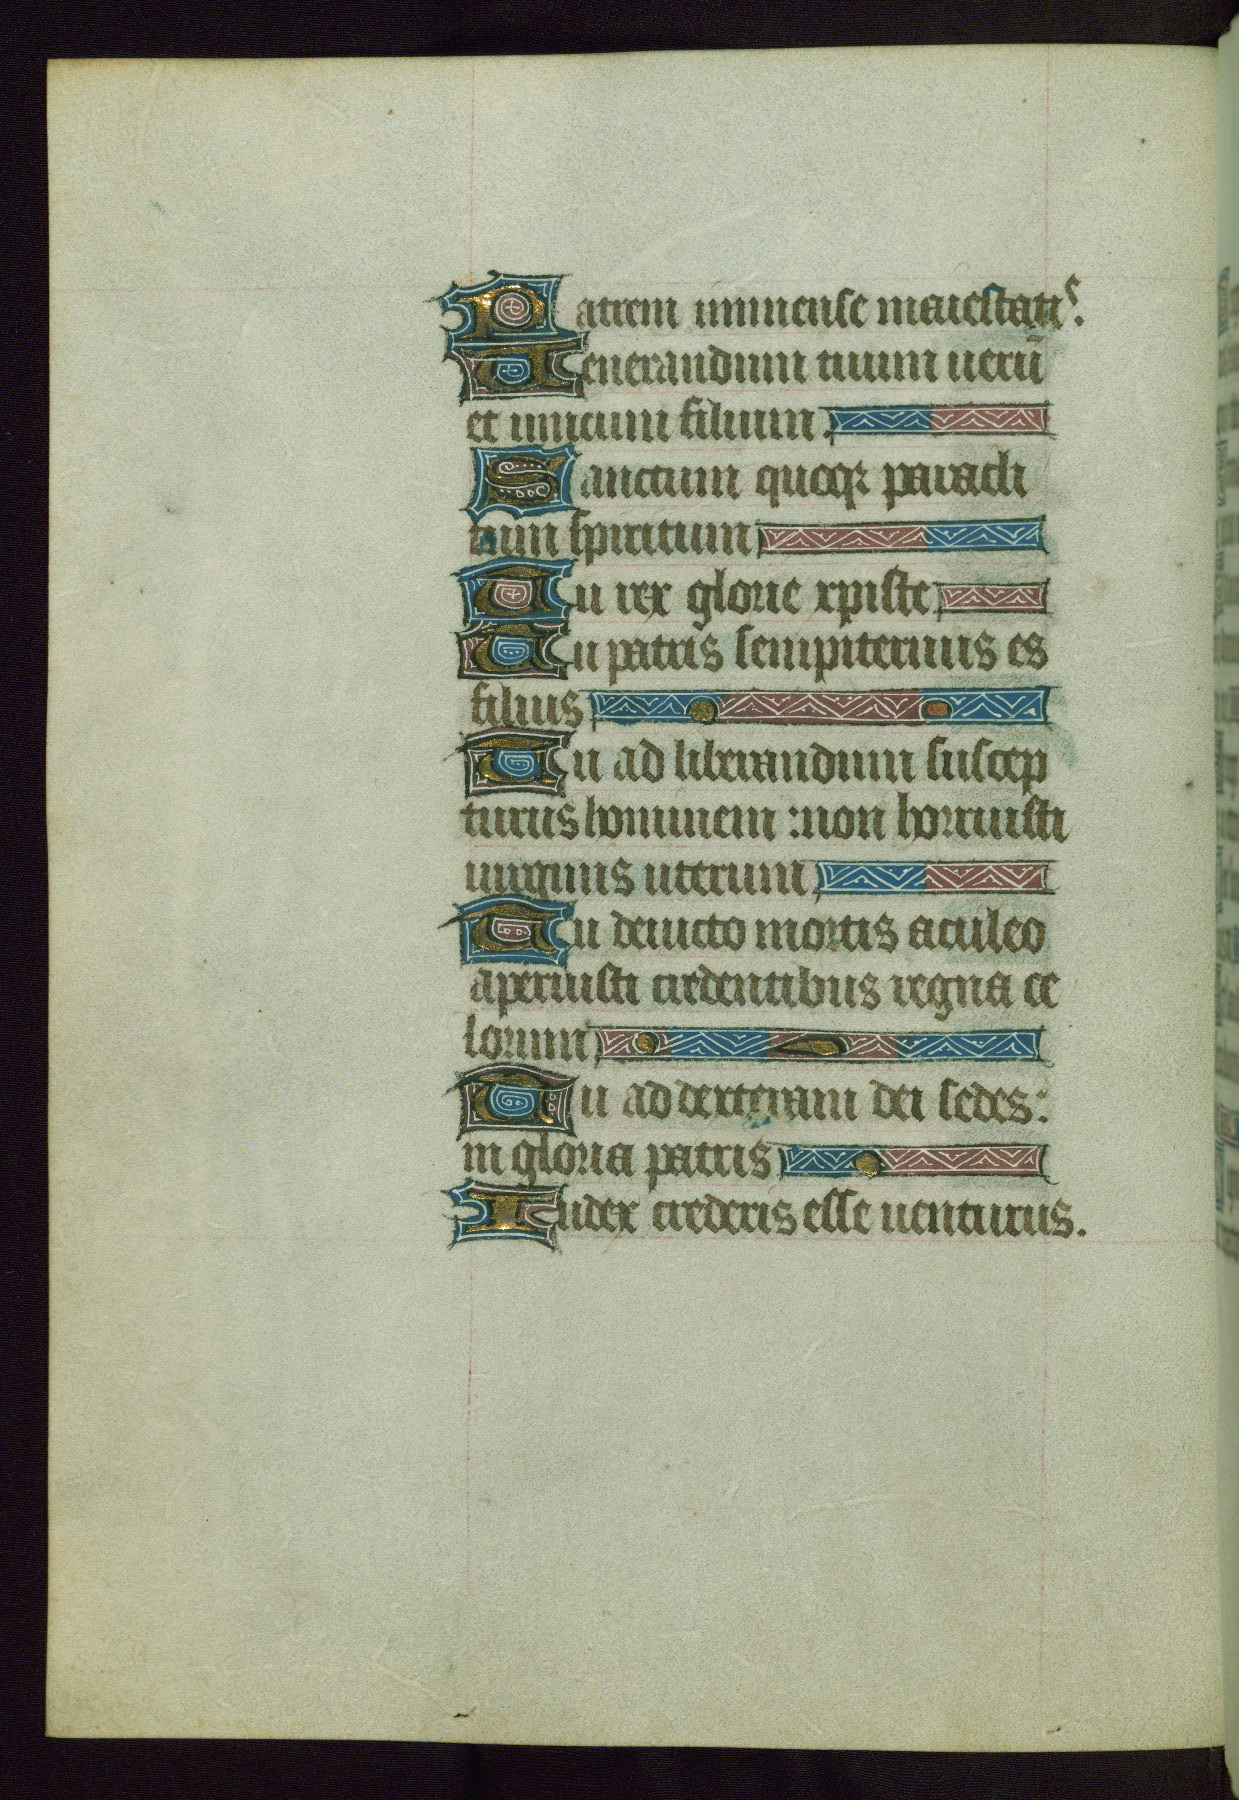 Patrem inmense maiestatis.
Uenerandum tuum uerū
et unicum filium.
Sanctum quoq; paracli
tum spiritum
Tu rex glorie xpiste
Tu patris sempiternus es
filius
Tu ad liberandum suscep
turus hominem : non horruisti
uirginis uterum.
Tu deuicto mortis aculeo
aperuisti credentibus regna ce
lorum
Tu ad dexteram dei sedes:
in gloria patris
Iudex crederis esse uenturus.